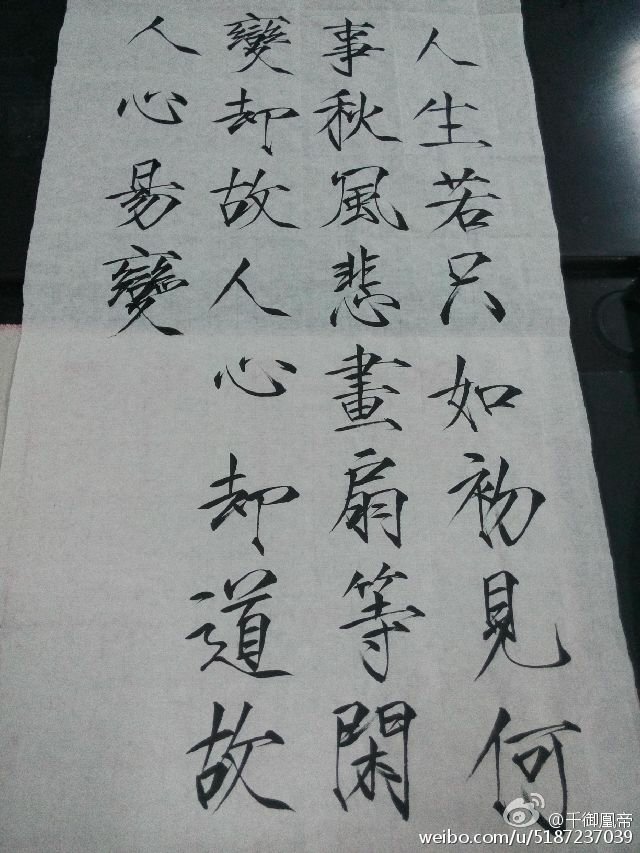 人生若只如初見何
事秋風悲畫扇等閑
變却故人心却道故
人心易變
@千御凰帝
weibo.com/u/5187237039